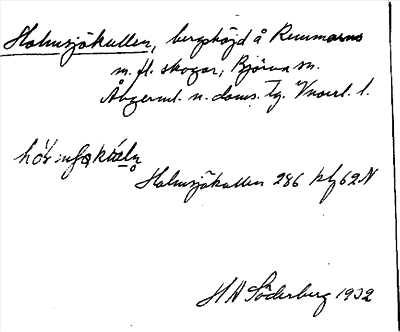 Holmsjökullen, bergshöjd å Remmarns
m. fl. skogar, Björna sn.
Ångerml. n. doms. tg. Vnorrl. l.
Holmsjökullen 286 kbl 62 N
H A Söderberg 1932